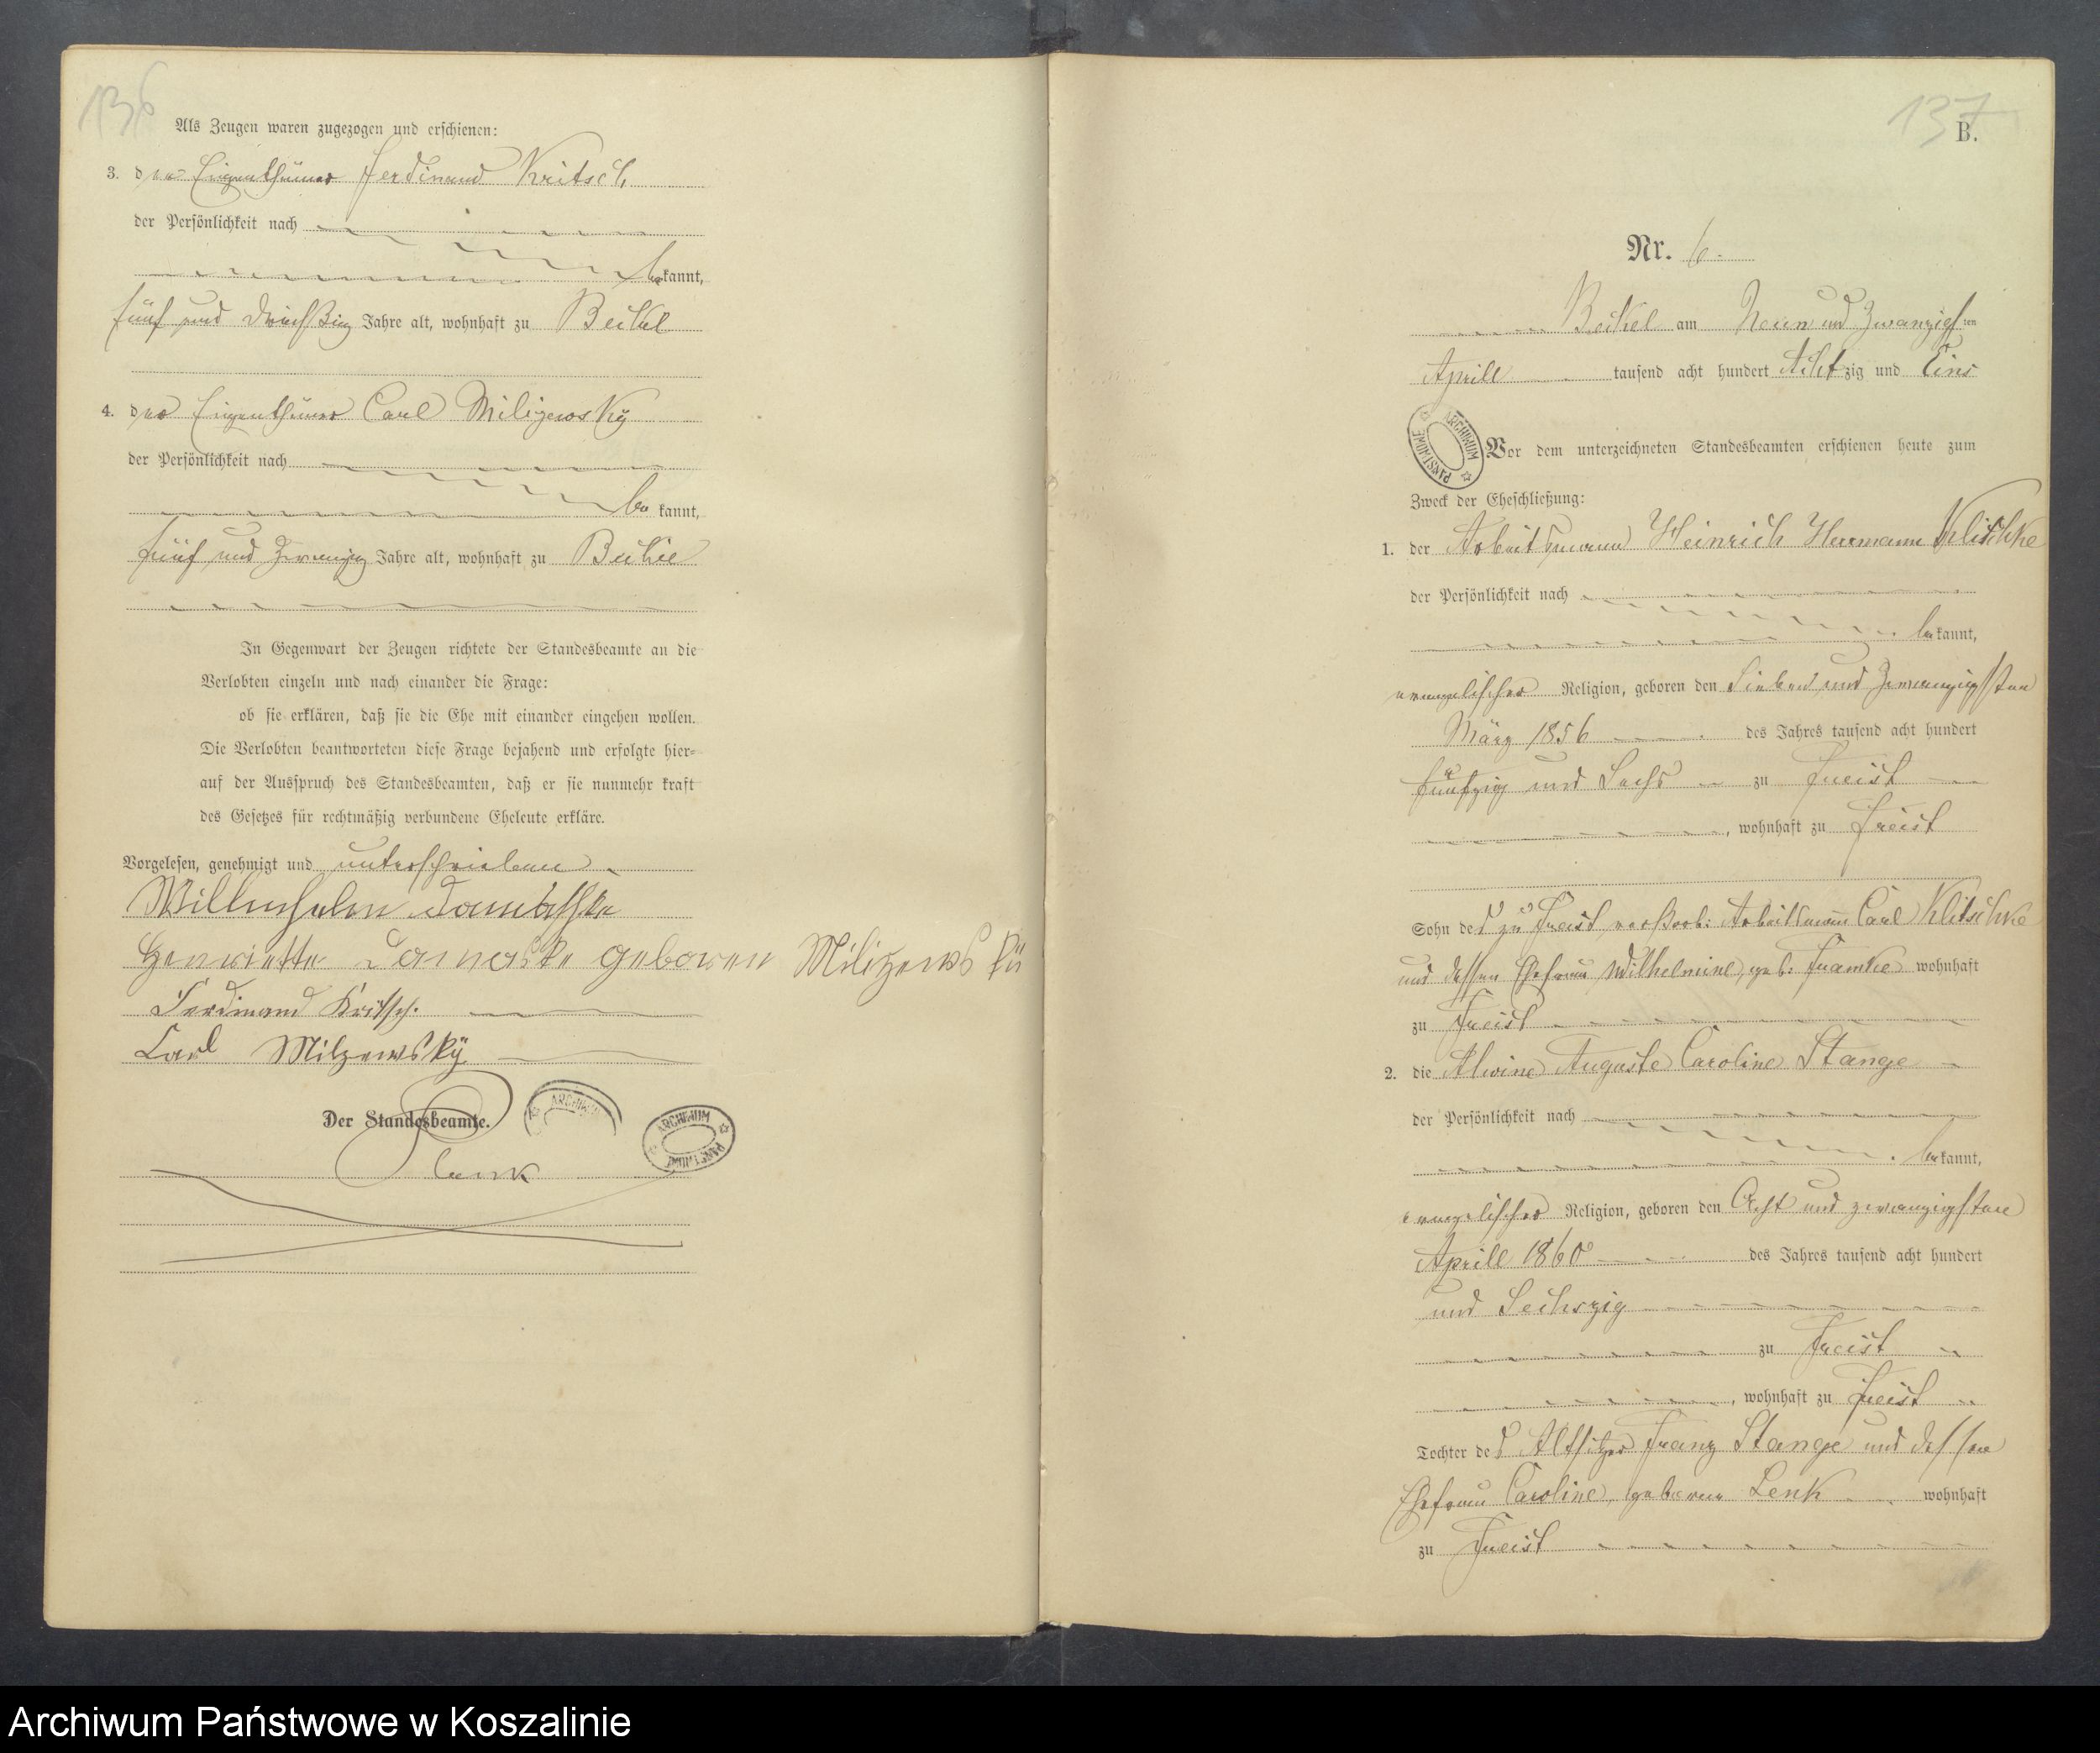 136
Als Zeugen waren zugezogen und erschienen:
3. der Eigenthümer Ferdinand Kritsch
der Persönlichkeit nach
bekannt,
fünf und dreißig Jahre alt, wohnhaft zu Beckel
4. der Eigenthümer Carl Milizewsky
der Persönlichkeit nach
be kannt,
fünf und zwanzig Jahre alt, wohnhaft zu
In Gegenwart der Zeugen richtete der Standesbeamte an die
Verlobten einzeln und nach einander die Frage:
ob sie erklären, daß sie die Ehe mit einander eingehen wollen.
Die Verlobten beantworteten diese Frage bejahend und erfolgte hier=
auf der Ausspruch des Standesbeamten, daß er sie nunmehr kraft
des Gesetzes für rechtmäßig verbundene Eheleute erkläre.
Vorgelesen, genehmigt und unterschrieben
Henriette geboren
Ferdinand Kritsch.
Carl Milzewsky
Der Standesbeamte.
ARCHIWUM
ARCHIWUM PAŃSTWOWE
137
B.
Nr. 6.
Beckel am Neun und Zwanzigsten
Aprill tausend acht hundert Achtzig und Eins
ARCHIWUM PAŃSTWOWE
Vor dem unterzeichneten Standesbeamten erschienen heute zum
Zweck der Eheschließung:
1. der Arbeitsmann Heinrich Hermann Klitschke
der Persönlichkeit nach
bekannt,
evangelischer Religion, geboren den Sieben und Zwanzigsten
März 1856 des Jahres tausend acht hundert
fünfzig und Sechs zu Freist
, wohnhaft zu Freist
Sohn des zu Freist verstorb: Arbeitsmann Carl Klitschke
und dessen Ehefrau Wilhelmine, geb: Framke wohnhaft
zu Freist
2. die Alwine Auguste Caroline Stange
der Persönlichkeit nach
bekannt,
evangelischer Religion, geboren den Acht und zwanzigsten
Aprill 1860 des Jahres tausend acht hundert
und Sechszig
zu Freist
, wohnhaft zu Freist
Tochter des Altsitzer Franz Stange und dessen
Ehefrau Caroline, geborne Lenk wohnhaft
zu Freist
Archiwum Państwowe w Koszalinie